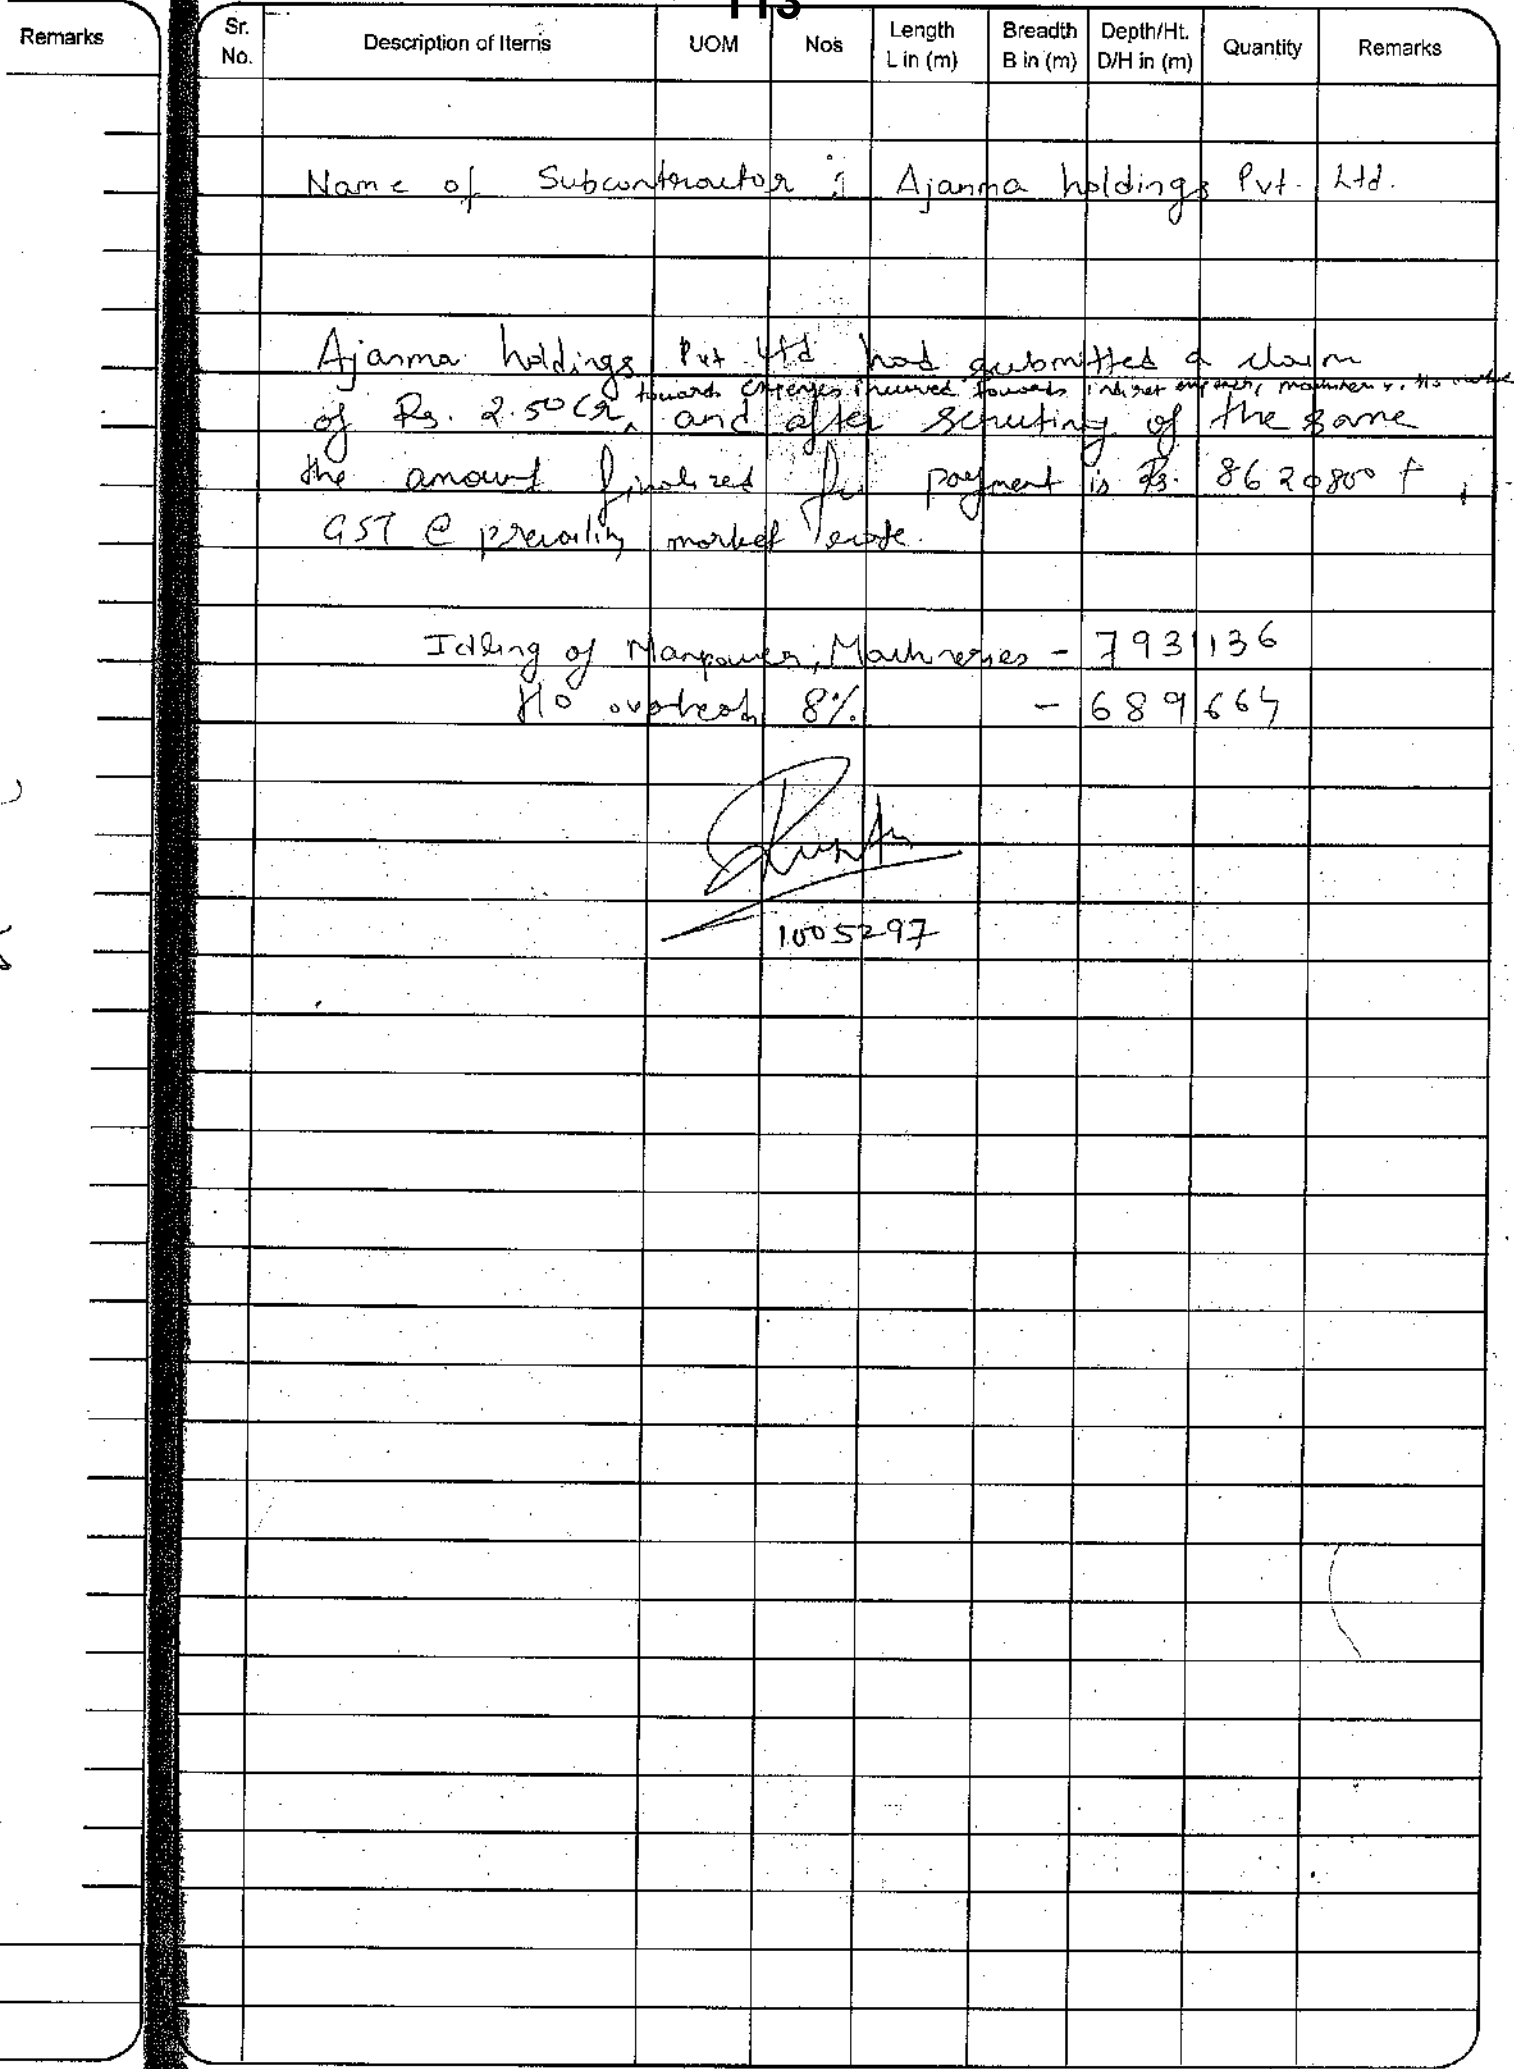 113
Remarks
Sr. No. Description of Items UOM Nos Length L in (m) Breadth B in (m) Depth/Ht. D/H in (m) Quantity Remarks
Name of Subcontractor : Ajanma holdings Pvt. Ltd.
Ajanma holdings Pvt Ltd had submitted a claim
towards expenses incurred towards indirect machinery
of Rs. 2.50 Cr, and after scrutiny of the same
the amount finalized for payment is Rs. 8620800 +
GST @ prevailing market rate.
Idling of Manpower, Machineries - 7931136
HO overheads 8% - 689664
1005297